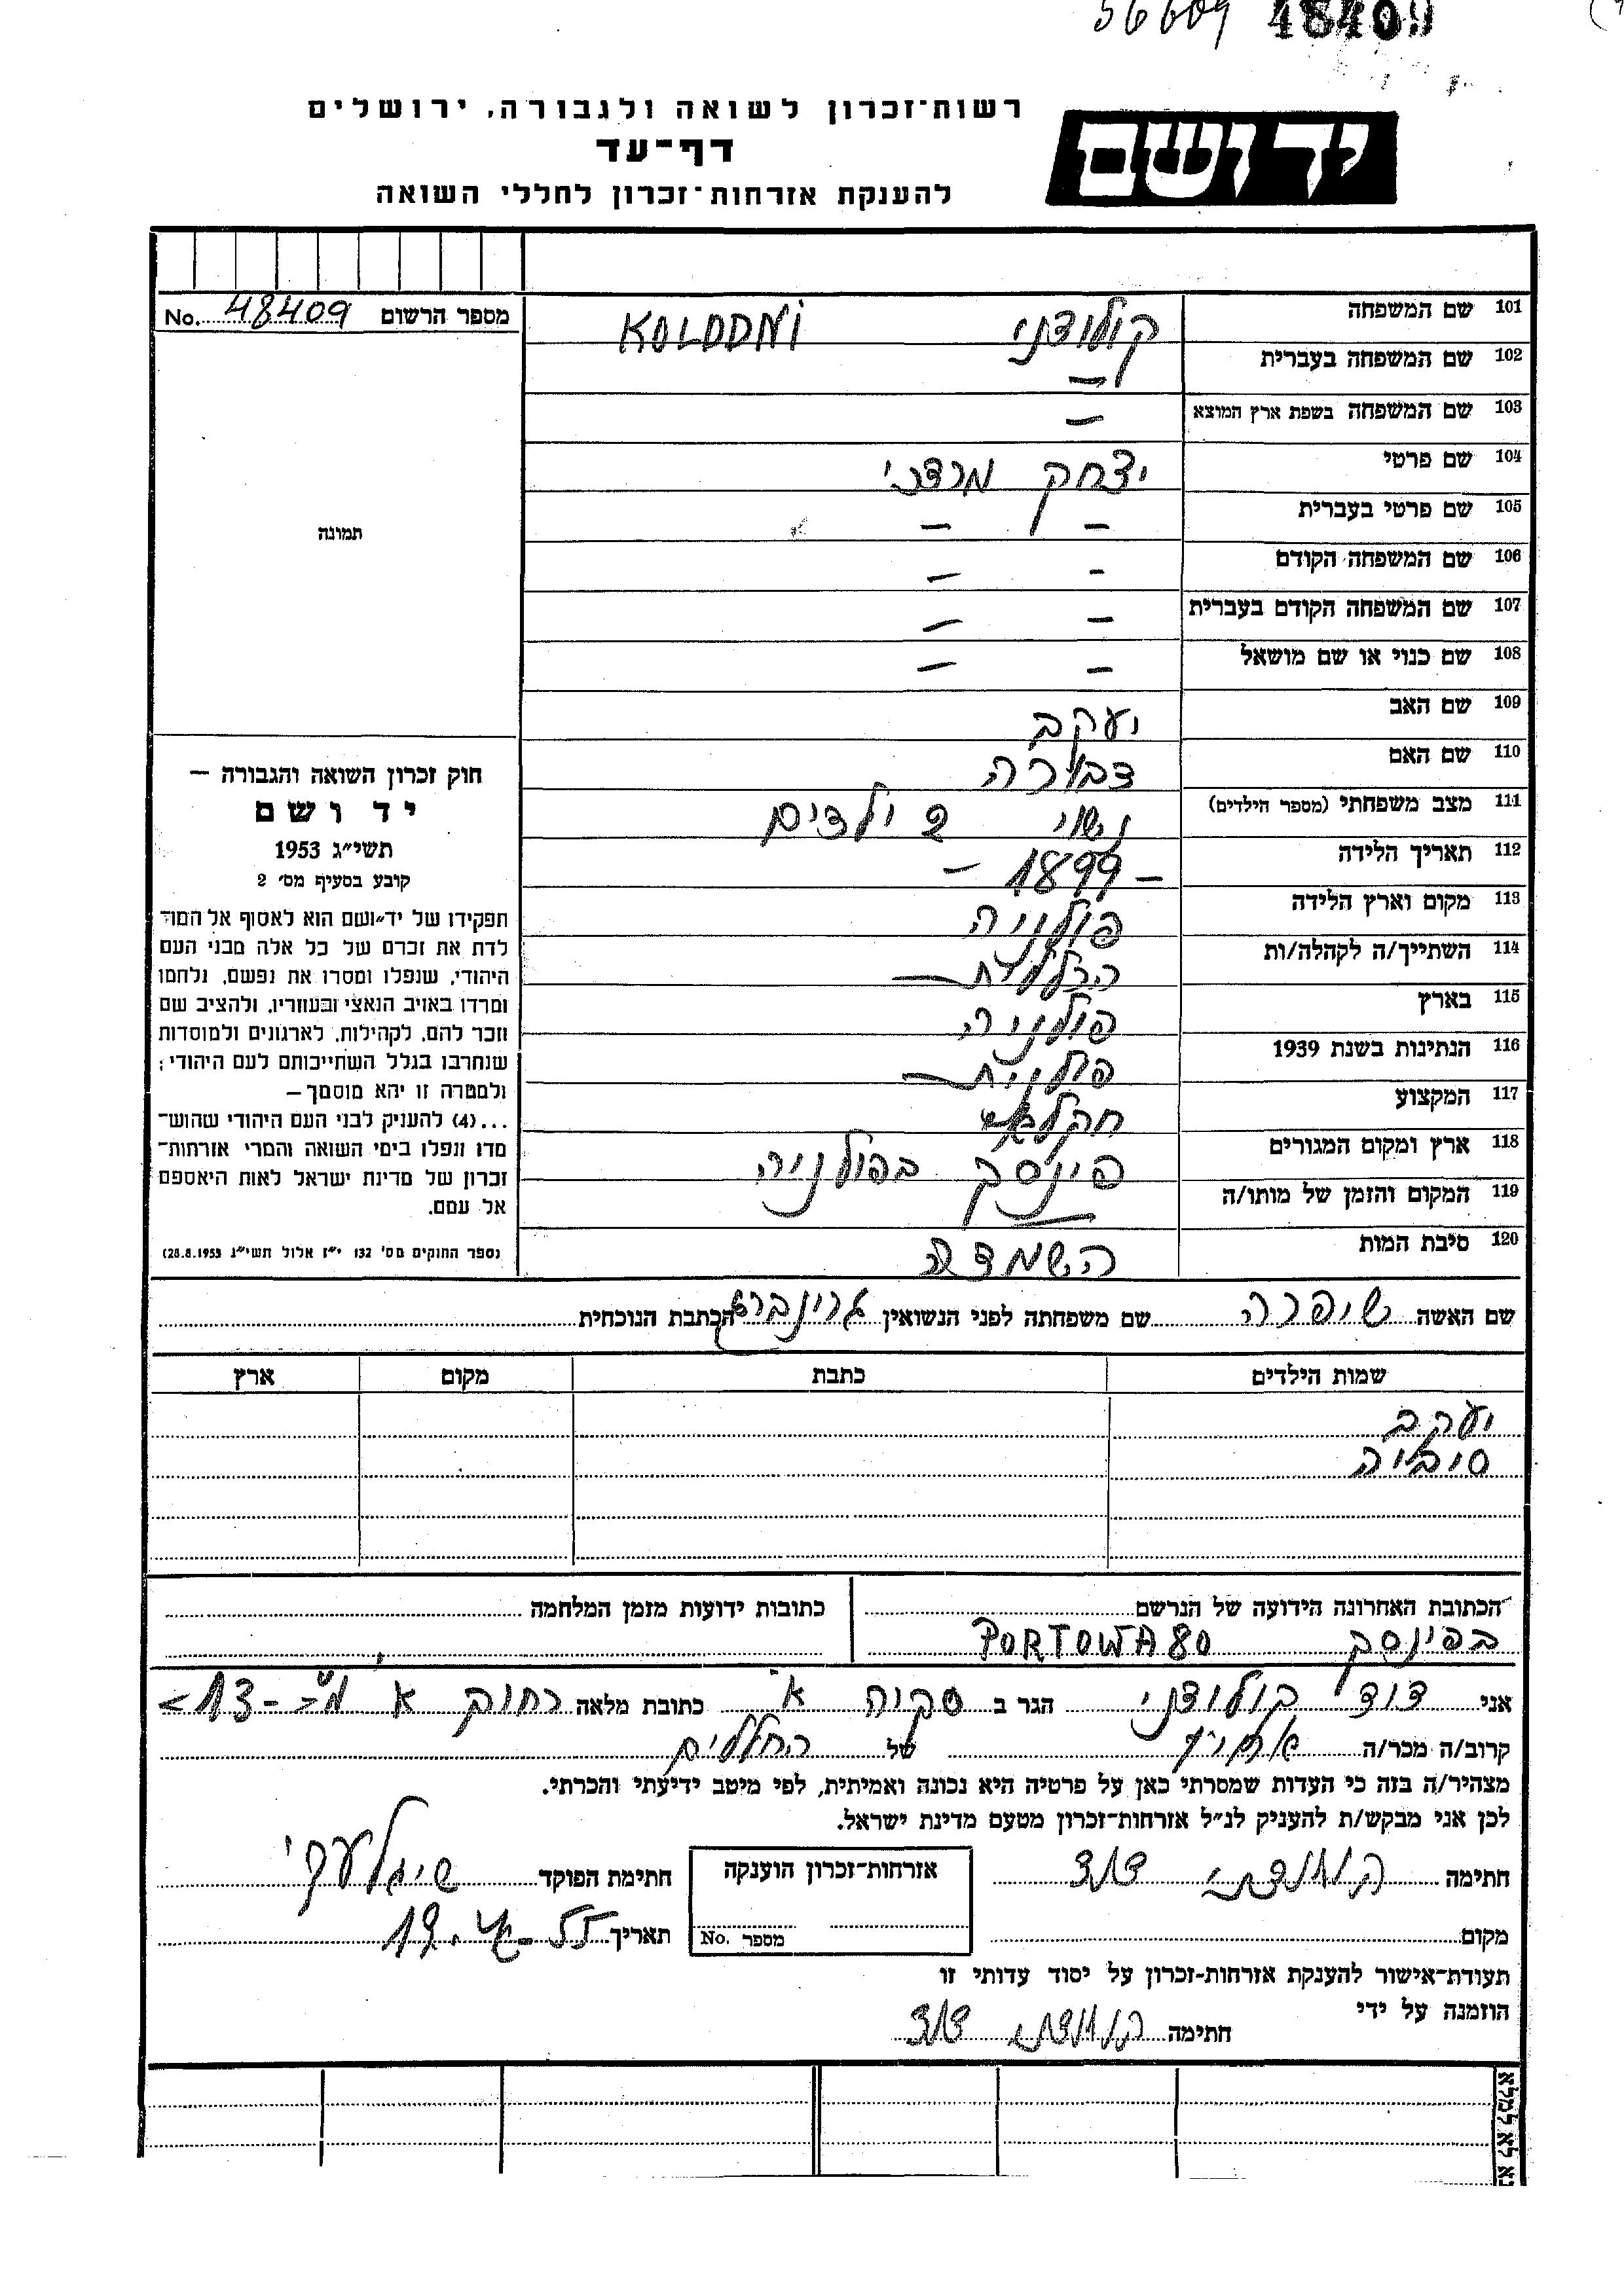 56609 48409
רשות־זכרון לשואה ולגבורה, ירושלים
דף־עד
להענקת אזרחות־זכרון לחללי השואה
יד ושם
מספר הרשום No. 48409
תמונה
חוק זכרון השואה והגבורה —
יד ושם
תשי״ג 1953
קובע בסעיף מס׳ 2
תפקידו של יד־ושם הוא לאסוף אל המו־
לדת את זכרם של כל אלה מבני העם
היהודי, שנפלו ומסרו את נפשם, נלחמו
ומרדו באויב הנאצי ובעוזריו, ולהציב שם
וזכר להם, לקהילות, לארגונים ולמוסדות
שנחרבו בגלל השתייכותם לעם היהודי;
ולמטרה זו יהא מוסמך —
...(4) להעניק לבני העם היהודי שהוש־
מדו ונפלו בימי השואה והמרי אזרחות־
זכרון של מדינת ישראל לאות היאספם
אל עמם.
(ספר החוקים מס׳ 132 י״ז אלול תשי״ג 28.8.1953)
101 שם המשפחה קולודני KOLODNI
102 שם המשפחה בעברית —
103 שם המשפחה בשפת ארץ המוצא —
104 שם פרטי יצחק מרדכי
105 שם פרטי בעברית — —
106 שם המשפחה הקודם - —
107 שם המשפחה הקודם בעברית — —
108 שם כנוי או שם מושאל — —
109 שם האב יעקב
110 שם האם דבורה
111 מצב משפחתי (מספר הילדים) נשוי 2 ילדים
112 תאריך הלידה — 1899 —
113 מקום וארץ הלידה פולניה
114 השתייך/ה לקהלה/ות
115 בארץ פולניה
116 הנתינות בשנת 1939 פולנית
117 המקצוע חקלאי
118 ארץ ומקום המגורים פינסק בפולניה
119 המקום והזמן של מותו/ה —
120 סיבת המות השמדה
שם האשה שיפרה שם משפחתה לפני הנשואין גרינברג הכתבת הנוכחית
שמות הילדים כתבת מקום ארץ
יעקב
סיביה
הכתובת האחרונה הידועה של הנרשם כתובות ידועות מזמן המלחמה
בפינסק PORTOWA 80
אני דוד קולודני הגר ב סקיה א׳ כתובת מלאה רחוב א
קרוב/ה מכר/ה אחיין של החללים
מצהיר/ה בזה כי העדות שמסרתי כאן על פרטיה היא נכונה ואמיתית, לפי מיטב ידיעתי והכרתי.
לכן אני מבקש/ת להעניק לנ״ל אזרחות־זכרון מטעם מדינת ישראל.
חתימה קולודני דוד אזרחות־זכרון הוענקה חתימת הפוקד
מקום מספר No. תאריך 19.4-55
תעודת־אישור להענקת אזרחות־זכרון על יסוד עדותי זו
הוזמנה על ידי
חתימה קולודני דוד
נא לא למלא